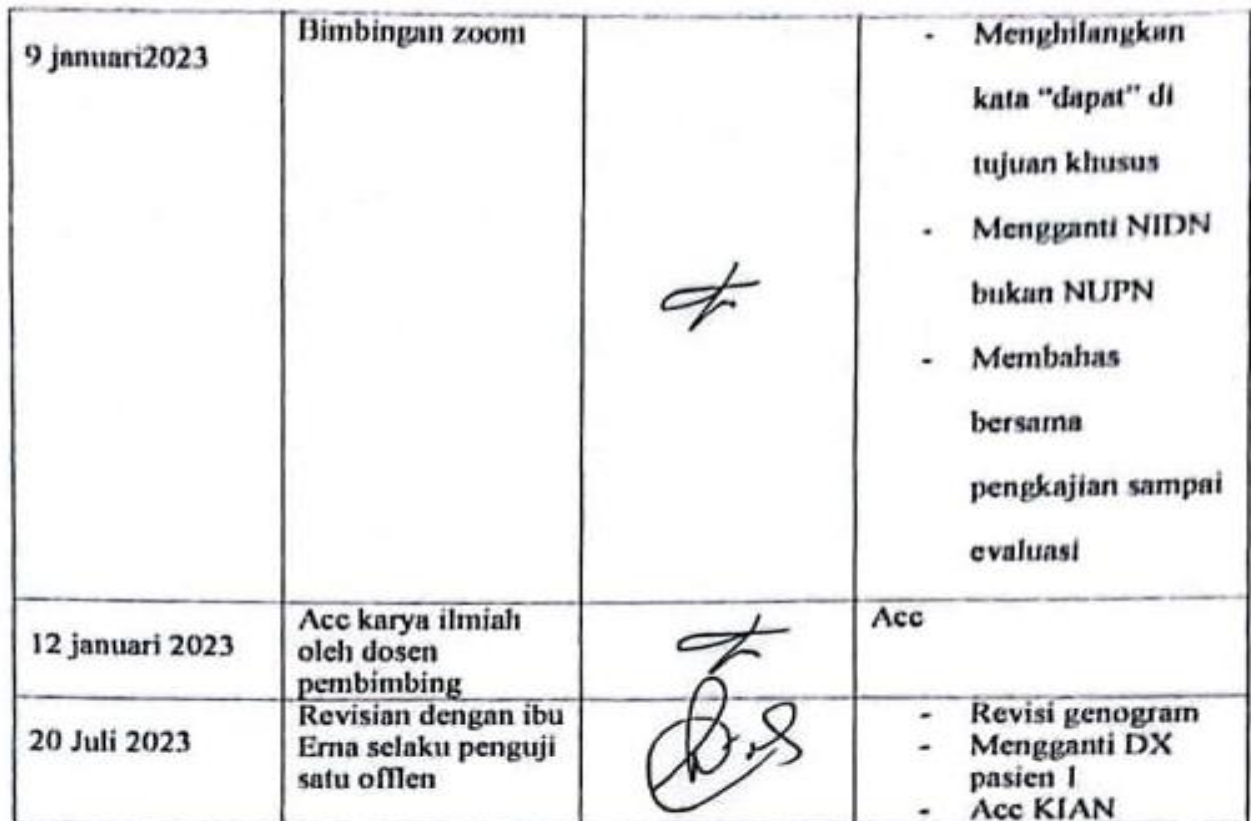 9 januari2023
Bimbingan zoom
- Menghilangkan
kata "dapat" di
tujuan khusus
- Mengganti NIDN
bukan NUPN
- Membahas
bersama
pengkajian sampai
evaluasi
12 januari 2023
Acc karya ilmiah
oleh dosen
pembimbing
Acc
20 Juli 2023
Revisian dengan ibu
Erna selaku penguji
satu offlen
- Revisi genogram
- Mengganti DX
pasien 1
- Acc KIAN